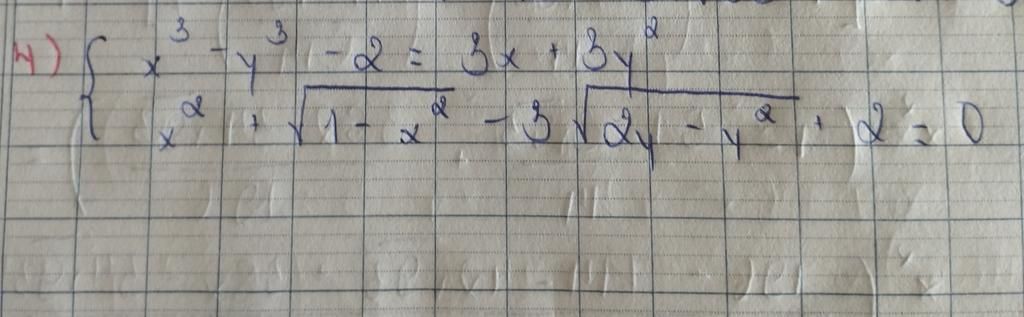 4) { x³ - y³ - 2 = 3x + 3y²
x² + √(1 - x²) - 3√(2y - y²) + 2 = 0